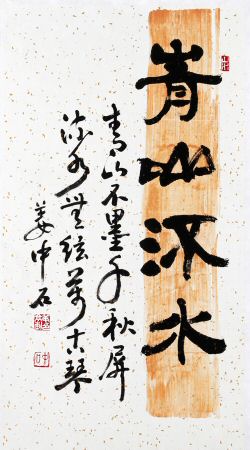 青山流水
青山不墨千秋屏
流水無絃萬古琴
姜中石